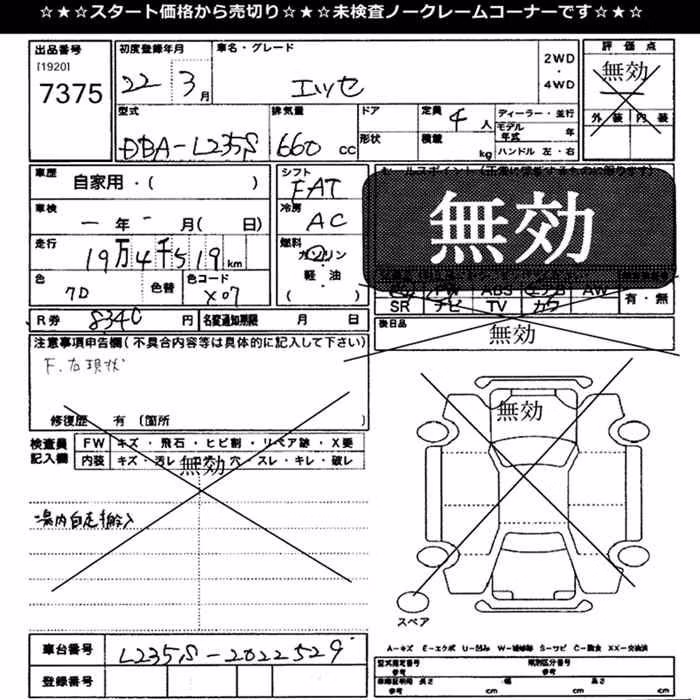 ☆★☆スタート価格から売切り☆★☆未検査ノークレームコーナーです☆★☆
出品番号
[1920]
7375
初度登録年月
22 3月
車名・グレード
エッセ
2WD
・
4WD
評価点
無効
外装 内装
型式
DBA-L235S
排気量
660 cc
ドア
形状
定員 4人
積載 kg
ディーラー・並行
モデル年式 年
ハンドル 左・右
車歴
自家用・( )
シフト
FAT
車検
一年 - 月( 日)
冷房
AC
走行
19万4千519km
燃料
ガソリン
・
軽・油
( )
色
色替
色コード
X07
無効
SR ナビ TV カワ
有・無
R券 8340円
名変通知期限 月 日
後日品
無効
注意事項申告欄(不具合内容等は具体的に記入して下さい)
F.右現状
修復歴 有 〔箇所 〕
検査員
記入欄
FW キズ・飛石・ヒビ割・リペア跡・X要
内装 キズ・汚レ・穴・スレ・キレ・破レ
無効
場内自走搬入
無効
スペア
A-キズ E-エクボ U-凹み W-補修跡 S-サビ C-腐食 XX-交換済
車台番号 L235S-2022529
登録番号
型式指定番号
参考
類別区分番号
参考
車庫証明用 長さ
参考 cm
幅
cm
高さ
cm